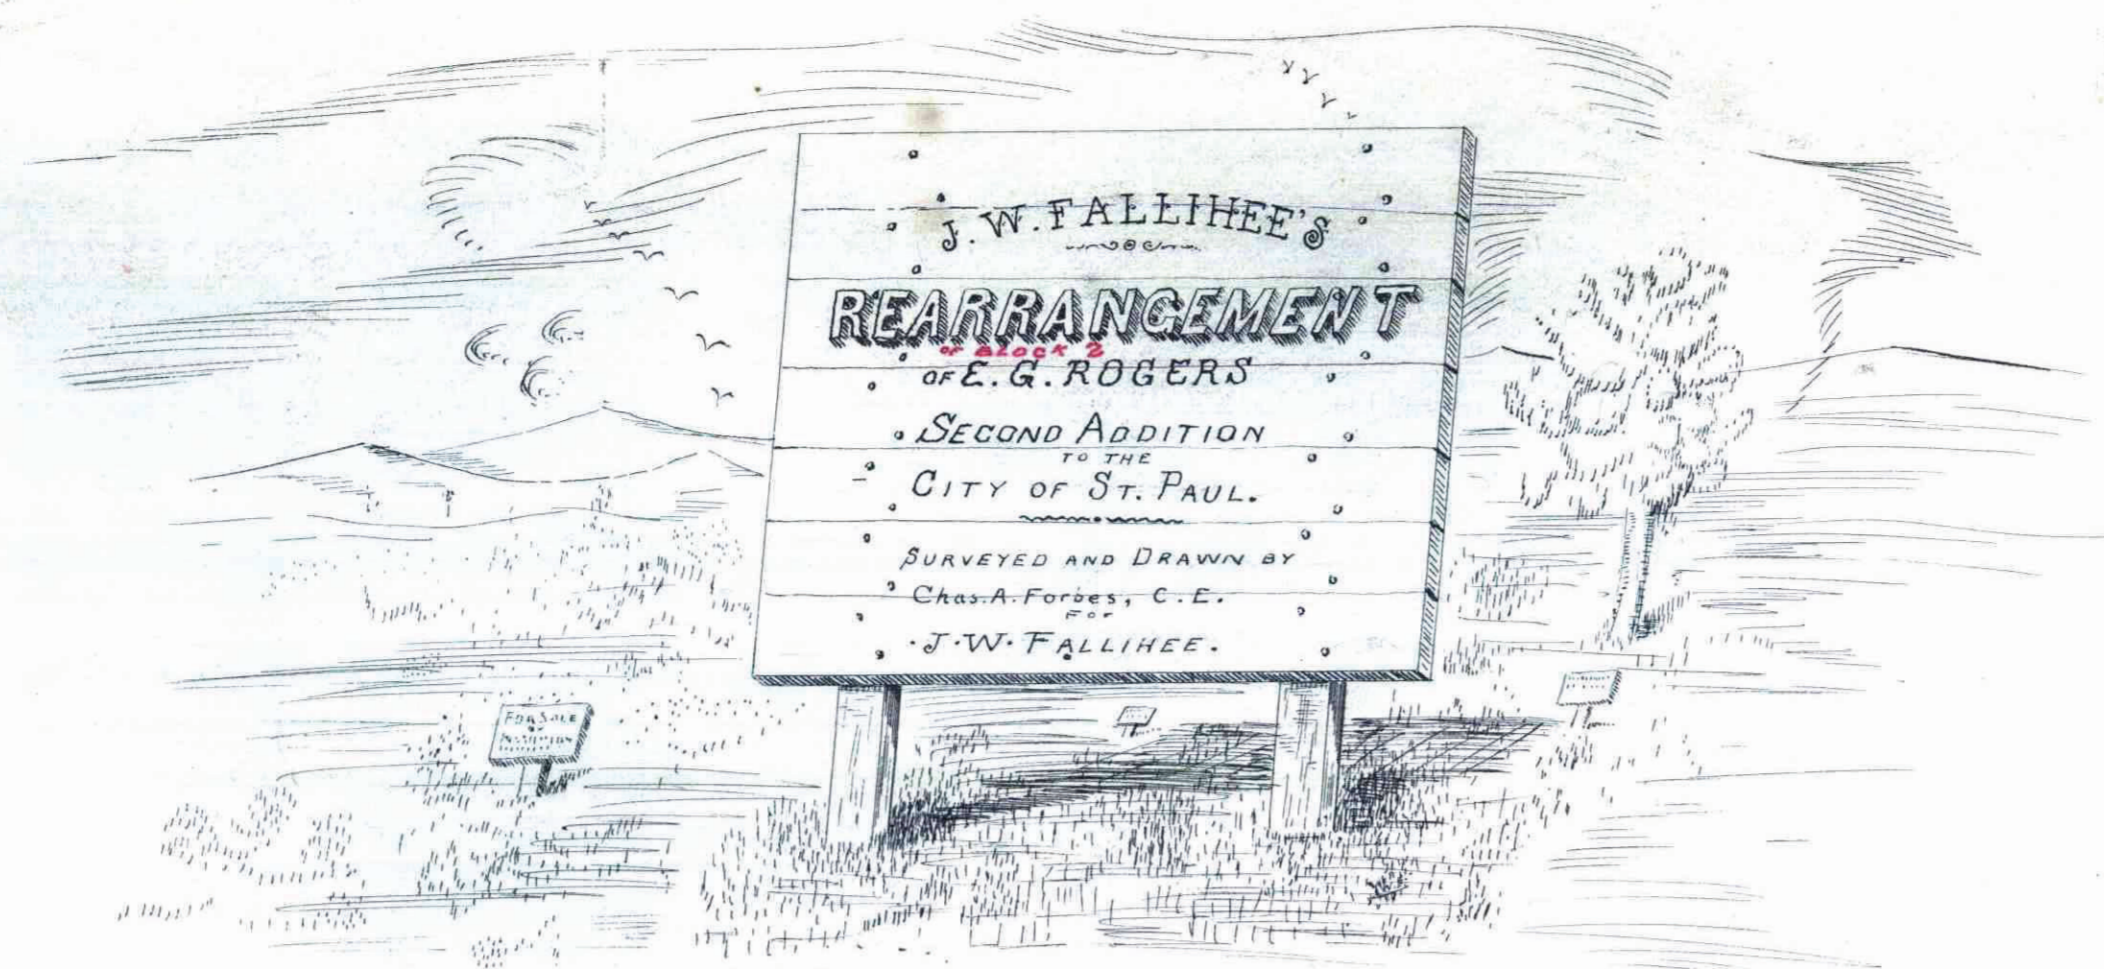 J. W. FALLIHEE'S
REARRANGEMENT
OF BLOCK 2
OF E. G. ROGERS
SECOND ADDITION
TO THE
CITY OF ST. PAUL.
SURVEYED AND DRAWN BY
Chas. A. Forbes, C. E.
For
J. W. FALLIHEE.
FOR SALE